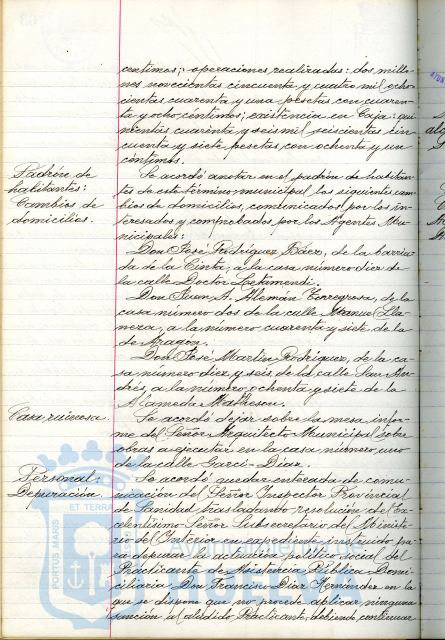 centimos; operaciones realizadas: dos millo-
nes novecientas cincuenta y cuatro mil ocho-
cientas cuarenta y una pesetas con cuaren-
ta y ocho céntimos; existencia en Caja: qui-
nientas cuarenta y seis mil seiscientas cin-
cuenta y siete pesetas con ochenta y un
céntimos.
Padrón de
habitantes:
Cambios de
domicilios.
Se acordó anotar en el padrón de habitan-
tes de este término municipal los siguientes cam-
bios de domicilios, comunicados por los in-
teresados y comprobados por los Agentes Mu-
nicipales:
Don José Rodríguez Báez, de la barria-
da de la Cinta, a la casa número diez de
la calle Doctor Letamendi.
Don Juan A. Alemán Torregrosa, de la
casa número dos de la calle Manuel Lla-
nera, a la número cuarenta y siete de la
de Aragón.
Don José Martín Rodríguez, de la ca-
sa número diez y seis de la calle San An-
drés, a la número ochenta y siete de la
Alameda Matheson.
Casa ruinosa.
Se acordó dejar sobre la mesa infor-
me del Señor Arquitecto Municipal sobre
obras a ejecutar en la casa número uno
de la calle Garci-Díaz.
Personal:
Depuración.
Se acordó quedar enterada de comu-
nicación del Señor Inspector Provincial
de Sanidad trasladando resolución del Ex-
celentísimo Señor Subsecretario del Ministe-
rio del Interior en expediente instruido pa-
ra depurar la actuación político social del
Practicante de Asistencia Pública Domi-
ciliaria Don Francisco Díaz Hernández en la
que se dispone que no procede aplicar ninguna
sanción al aludido Practicante, debiendo continuar
PORTUS MARIS
ET TERRA